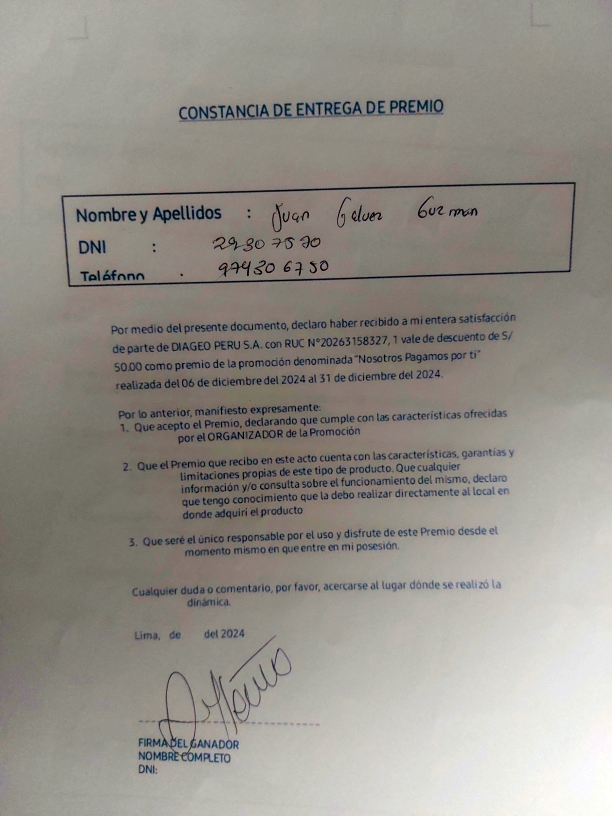 CONSTANCIA DE ENTREGA DE PREMIO
Nombre y Apellidos : Juan Galvez Guzman
DNI : 29307570
Teléfono : 979306750
Por medio del presente documento, declaro haber recibido a mi entera satisfacción
de parte de DIAGEO PERU S.A. con RUC N°20263158327, 1 vale de descuento de S/
50.00 como premio de la promoción denominada "Nosotros Pagamos por ti"
realizada del 06 de diciembre del 2024 al 31 de diciembre del 2024.
Por lo anterior, manifiesto expresamente:
1. Que acepto el Premio, declarando que cumple con las características ofrecidas
por el ORGANIZADOR de la Promoción
2. Que el Premio que recibo en este acto cuenta con las características, garantías y
limitaciones propias de este tipo de producto. Que cualquier
información y/o consulta sobre el funcionamiento del mismo, declaro
que tengo conocimiento que la debo realizar directamente al local en
donde adquirí el producto
3. Que seré el único responsable por el uso y disfrute de este Premio desde el
momento mismo en que entre en mi posesión.
Cualquier duda o comentario, por favor, acercarse al lugar dónde se realizó la
dinámica.
Lima, de del 2024
FIRMA DEL GANADOR
NOMBRE COMPLETO
DNI: